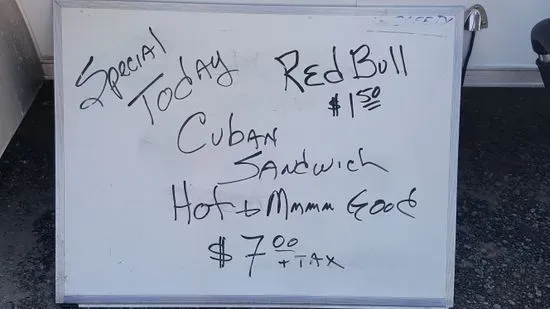 Special
Today
Red Bull
$1.50
Cuban
Sandwich
Hot + Mmmm Good
$7.00
+ TAX